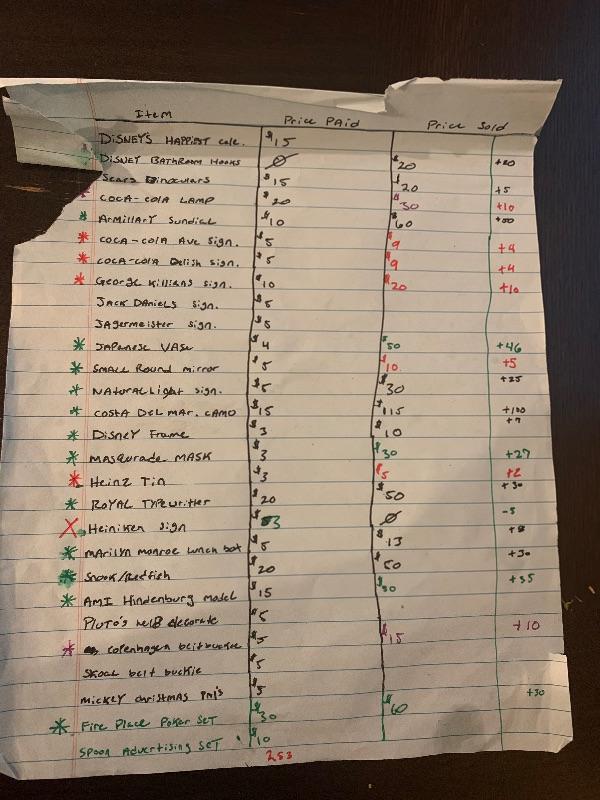 Item Price PAID Price Sold
DISNEY'S HAPPIEST cele. $15
DISNEY BATHROOM HOOKS Ø $20 +20
Sears Binoculars $15 $20 +5
COCA-COLA LAMP $20 $30 +10
ARMILLARY Sundial $10 $60 +50
COCA-COLA Ave Sign. $5 $9 +4
COCA-COLA Delish sign. $5 $9 +4
George Killians sign. $10 $20 +10
JACK DANIELS sign. $5
JAGERMEISTER sign. $5
JAPANESE VASE $4 $50 +46
Small Round mirror $5 $10 +5
NATURAL Light sign. $5 $30 +25
COSTA DEL MAR. CAMO $15 $115 +100
DISNEY Frame $3 $10 +7
MASQURADE MASK $3 $30 +27
Heinz Tin $3 $5 +2
ROYAL TypewriTER $20 $50 +30
Heiniken sign $3 Ø -5
MARILYN MONROE lunch box $5 $13 +8
Snook/Redfish $20 $50 +30
AMI Hindenburg model $15 $50 +35
PLUTO'S decorate $5
Copenhagen beltbuckle $5 $15 +10
SKOAL belt buckle $5
MICKEY CHRISTMAS PNJ'S $5
Fire Place Poker SET $30 $60 +30
SPOON Advertising SET $10
253